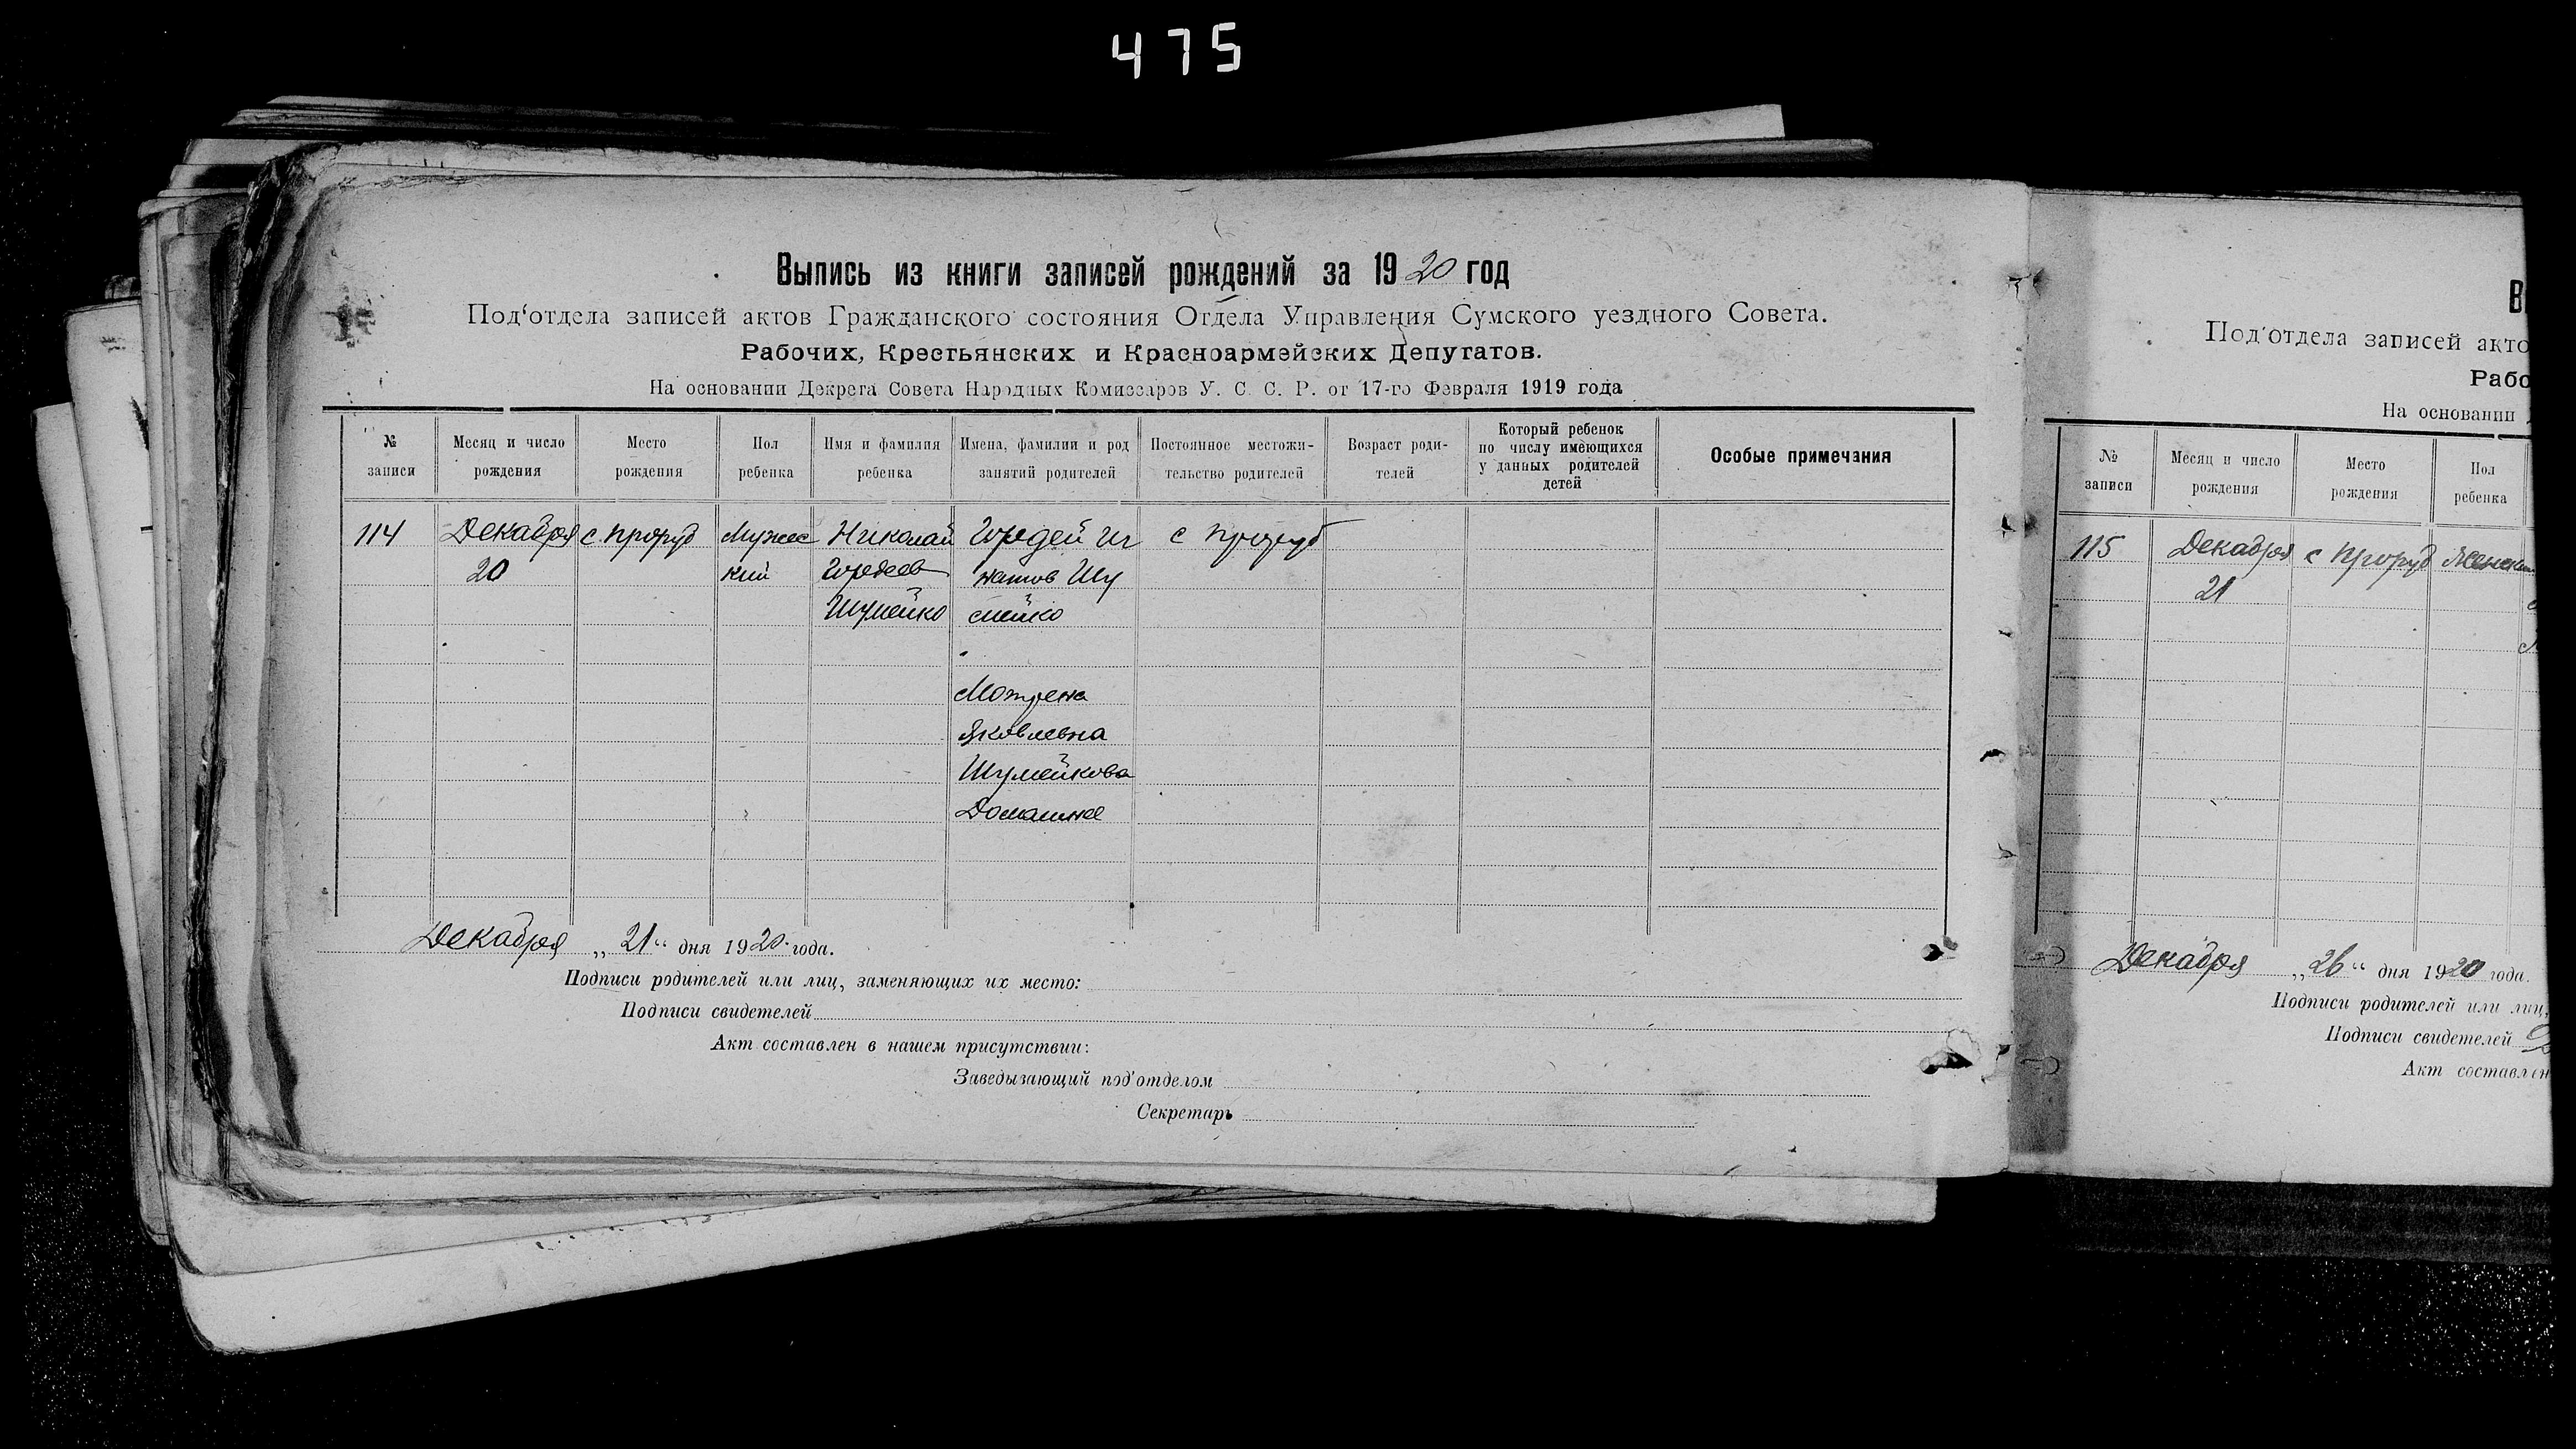 475
Выпись из книги записей рождений за 1920 год
Под'отдела записей актов Гражданского состояния Отдела Управления Сумского уездного Совета.
Рабочих, Крестьянских и Красноармейских Депутатов.
На основании Декрета Совета Народных Комиссаров У. С. С. Р. от 17-го Февраля 1919 года
№ записи
Месяц и число рождения
Место рождения
Пол ребенка
Имя и фамилия ребенка
Имена, фамилии и род занятий родителей
Постоянное местожи-тельство родителей
Возраст роди-телей
Который ребенок по числу имеющихся у данных родителей детей
Особые примечания
114
Декабря
20
с. Проруб
Мужес
кий
Николай
Гордеев
Шумейко
Гордей Иг
натов Шу
мейко
Мотрена
Яковлевна
Шумейкова
Домашнее
с Проруб
Декабря „21“ дня 1920 года.
Подписи родителей или лиц, заменяющих их место:
Подписи свидетелей
Акт составлен в нашем присутствии:
Заведызающий под'отделом
Секретарь
В
Под'отдела записей акто
Рабо
На основании
№ записи
Месяц и число рождения
Место рождения
Пол ребенка
115
Декабря
21
с Проруб
Женский
Декабря „26“ дня 1920 года.
Подписи родителей или лиц,
Подписи свидетелей
Акт составлен